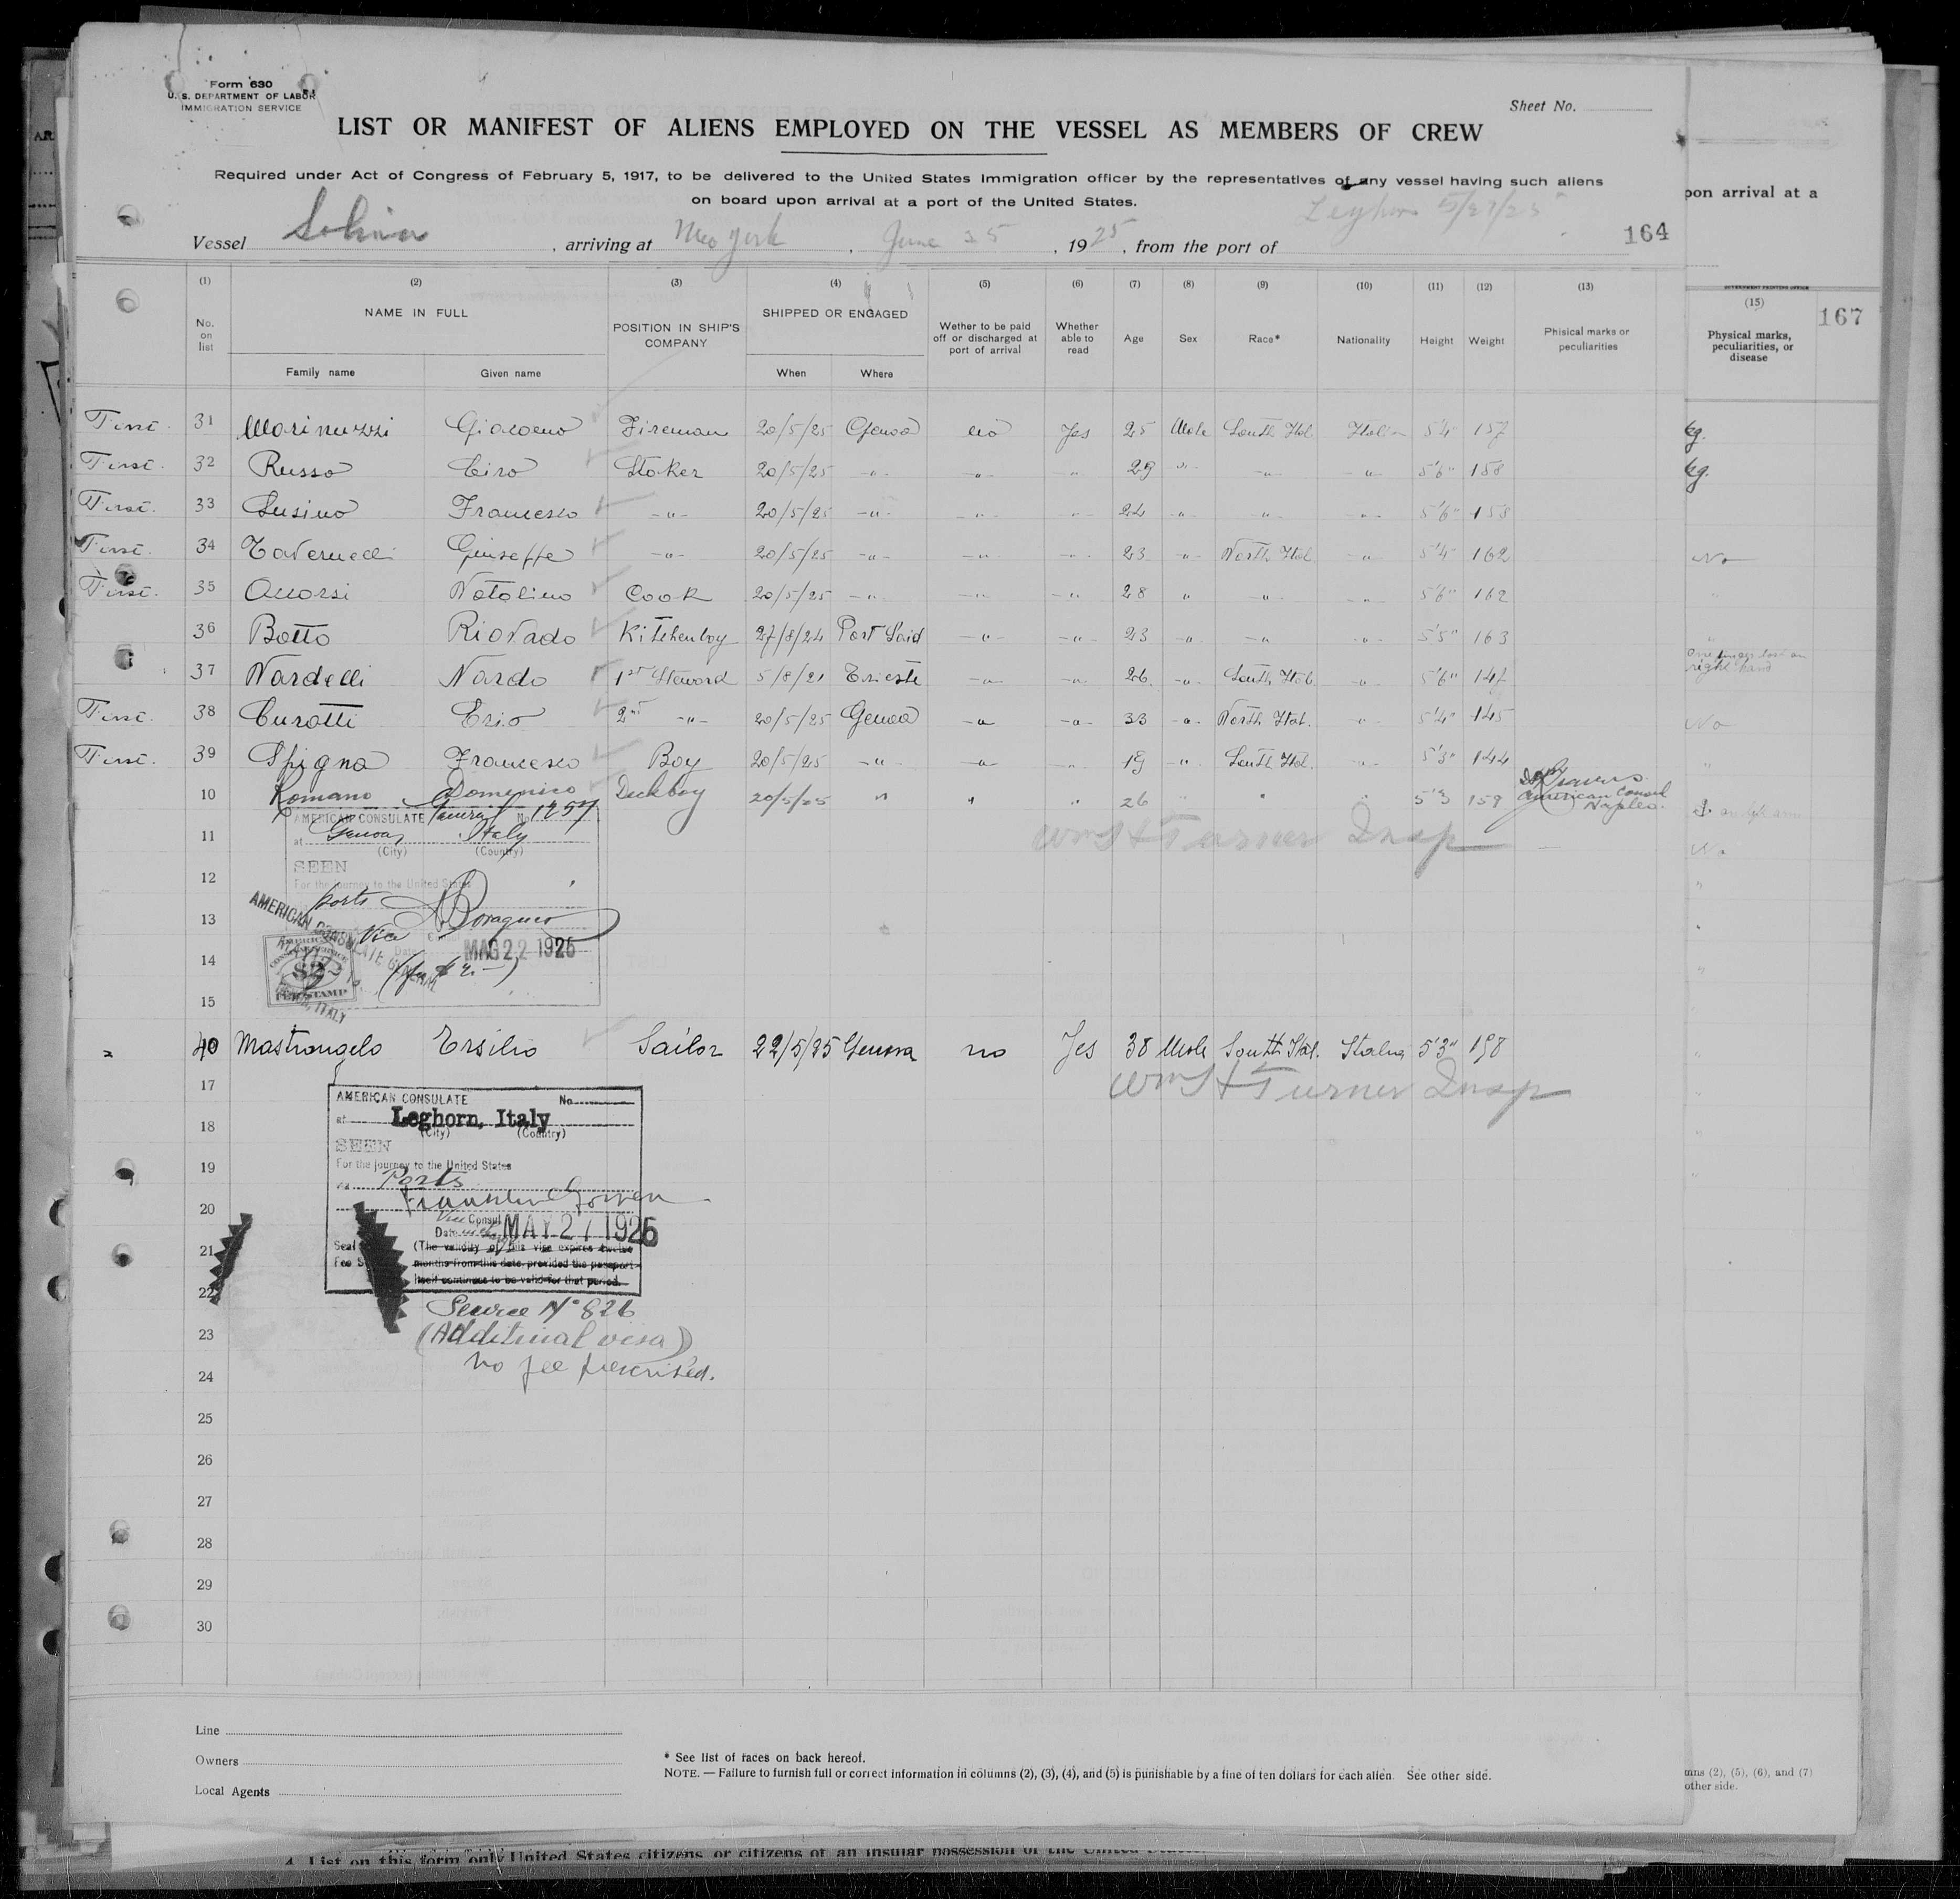 Form 630
U. S. DEPARTMENT OF LABOR
IMMIGRATION SERVICE
Sheet No.
LIST OR MANIFEST OF ALIENS EMPLOYED ON THE VESSEL AS MEMBERS OF CREW
Required under Act of Congress of February 5, 1917, to be delivered to the United States Immigration officer by the representatives of any vessel having such aliens
on board upon arrival at a port of the United States.
pon arrival at a
Vessel , arriving at New York , June 25 , 1925, from the port of Leghorn 5/27/25
164
(1) (2) (3) (4) (5) (6) (7) (8) (9) (10) (11) (12) (13)
No. on list
NAME IN FULL
Family name Given name
POSITION IN SHIP'S COMPANY
SHIPPED OR ENGAGED
When Where
Wether to be paid off or discharged at port of arrival
Whether able to read
Age Sex Race* Nationality Height Weight
Phisical marks or peculiarities
GOVERNMENT PRINTING OFFICE
(15)
Physical marks, peculiarities, or disease
167
First. 31 Marinuzzi Giacomo Fireman 20/5/25 Genoa no Yes 25 Male South Ital. Italian 5'4" 157
First. 32 Russo Ciro Stoker 20/5/25 -"- -"- -"- 29 -"- -"- -"- 5'6" 158
First. 33 Susino Francesco -"- 20/5/25 -"- -"- -"- 24 -"- -"- -"- 5'6" 153
First. 34 Giuseppe -"- 20/5/25 -"- -"- -"- 23 -"- North Ital. -"- 5'4" 162
No
First. 35 Natalino Cook 20/5/25 -"- -"- -"- 28 " -"- -"- 5'6" 162
36 Botto Kitchenboy 27/8/24 Port Said -"- -"- 23 -"- -"- -"- 5'5" 163
One finger lost on
right hand
37 Nardelli Nardo 1st Steward 5/8/21 Trieste -"- -"- 26 -"- South Ital. -"- 5'6" 147
First. 38 Curotti 2nd -"- 20/5/25 Genoa -"- -"- 33 -"- North Ital. -"- 5'4" 145
No
First. 39 Spigna Francesco Boy 20/5/25 -"- -"- -"- 19 -"- South Ital. -"- 5'3" 144
10 Romano Domenico Deckboy 20/5/25 " " " 26 " " " 5'3 159
American Consul
Naples.
AMERICAN CONSULATE General No. 1257
at Genoa, Italy
(City) (Country)
11
Wm H Turner Insp
No
SEEN
For the journey to the United States
12
ports
13
AMERICAN CONSULATE GENERAL
Vice
Date MAG 22 1925
14
$2
FEE STAMP
15
ITALY
40 Mastrangelo Ersilio Sailor 22/5/25 Genova no Yes 38 Male South Ital. 5'3"
17
Wm H Turner Insp
AMERICAN CONSULATE No.
at Leghorn, Italy
(City) (Country)
18
SEEN
For the journey to the United States
19
via Ports
20
Franklin Gowen
Vice Consul
Date MAY 27 1925
21
Seal (The validity of this vise expires twelve
Fee $ months from this date provided the passport
itself continues to be valid for that period.
22
Service No 826
23
(Additional visa)
no fee prescribed.
24
25
26
27
28
29
30
Line
Owners
Local Agents
* See list of races on back hereof.
NOTE. — Failure to furnish full or correct information in columns (2), (3), (4), and (5) is punishable by a fine of ten dollars for each alien. See other side.
mns (2), (5), (6), and (7)
other side.
4. List on this form only United States citizens or citizens of an insular possession of the United